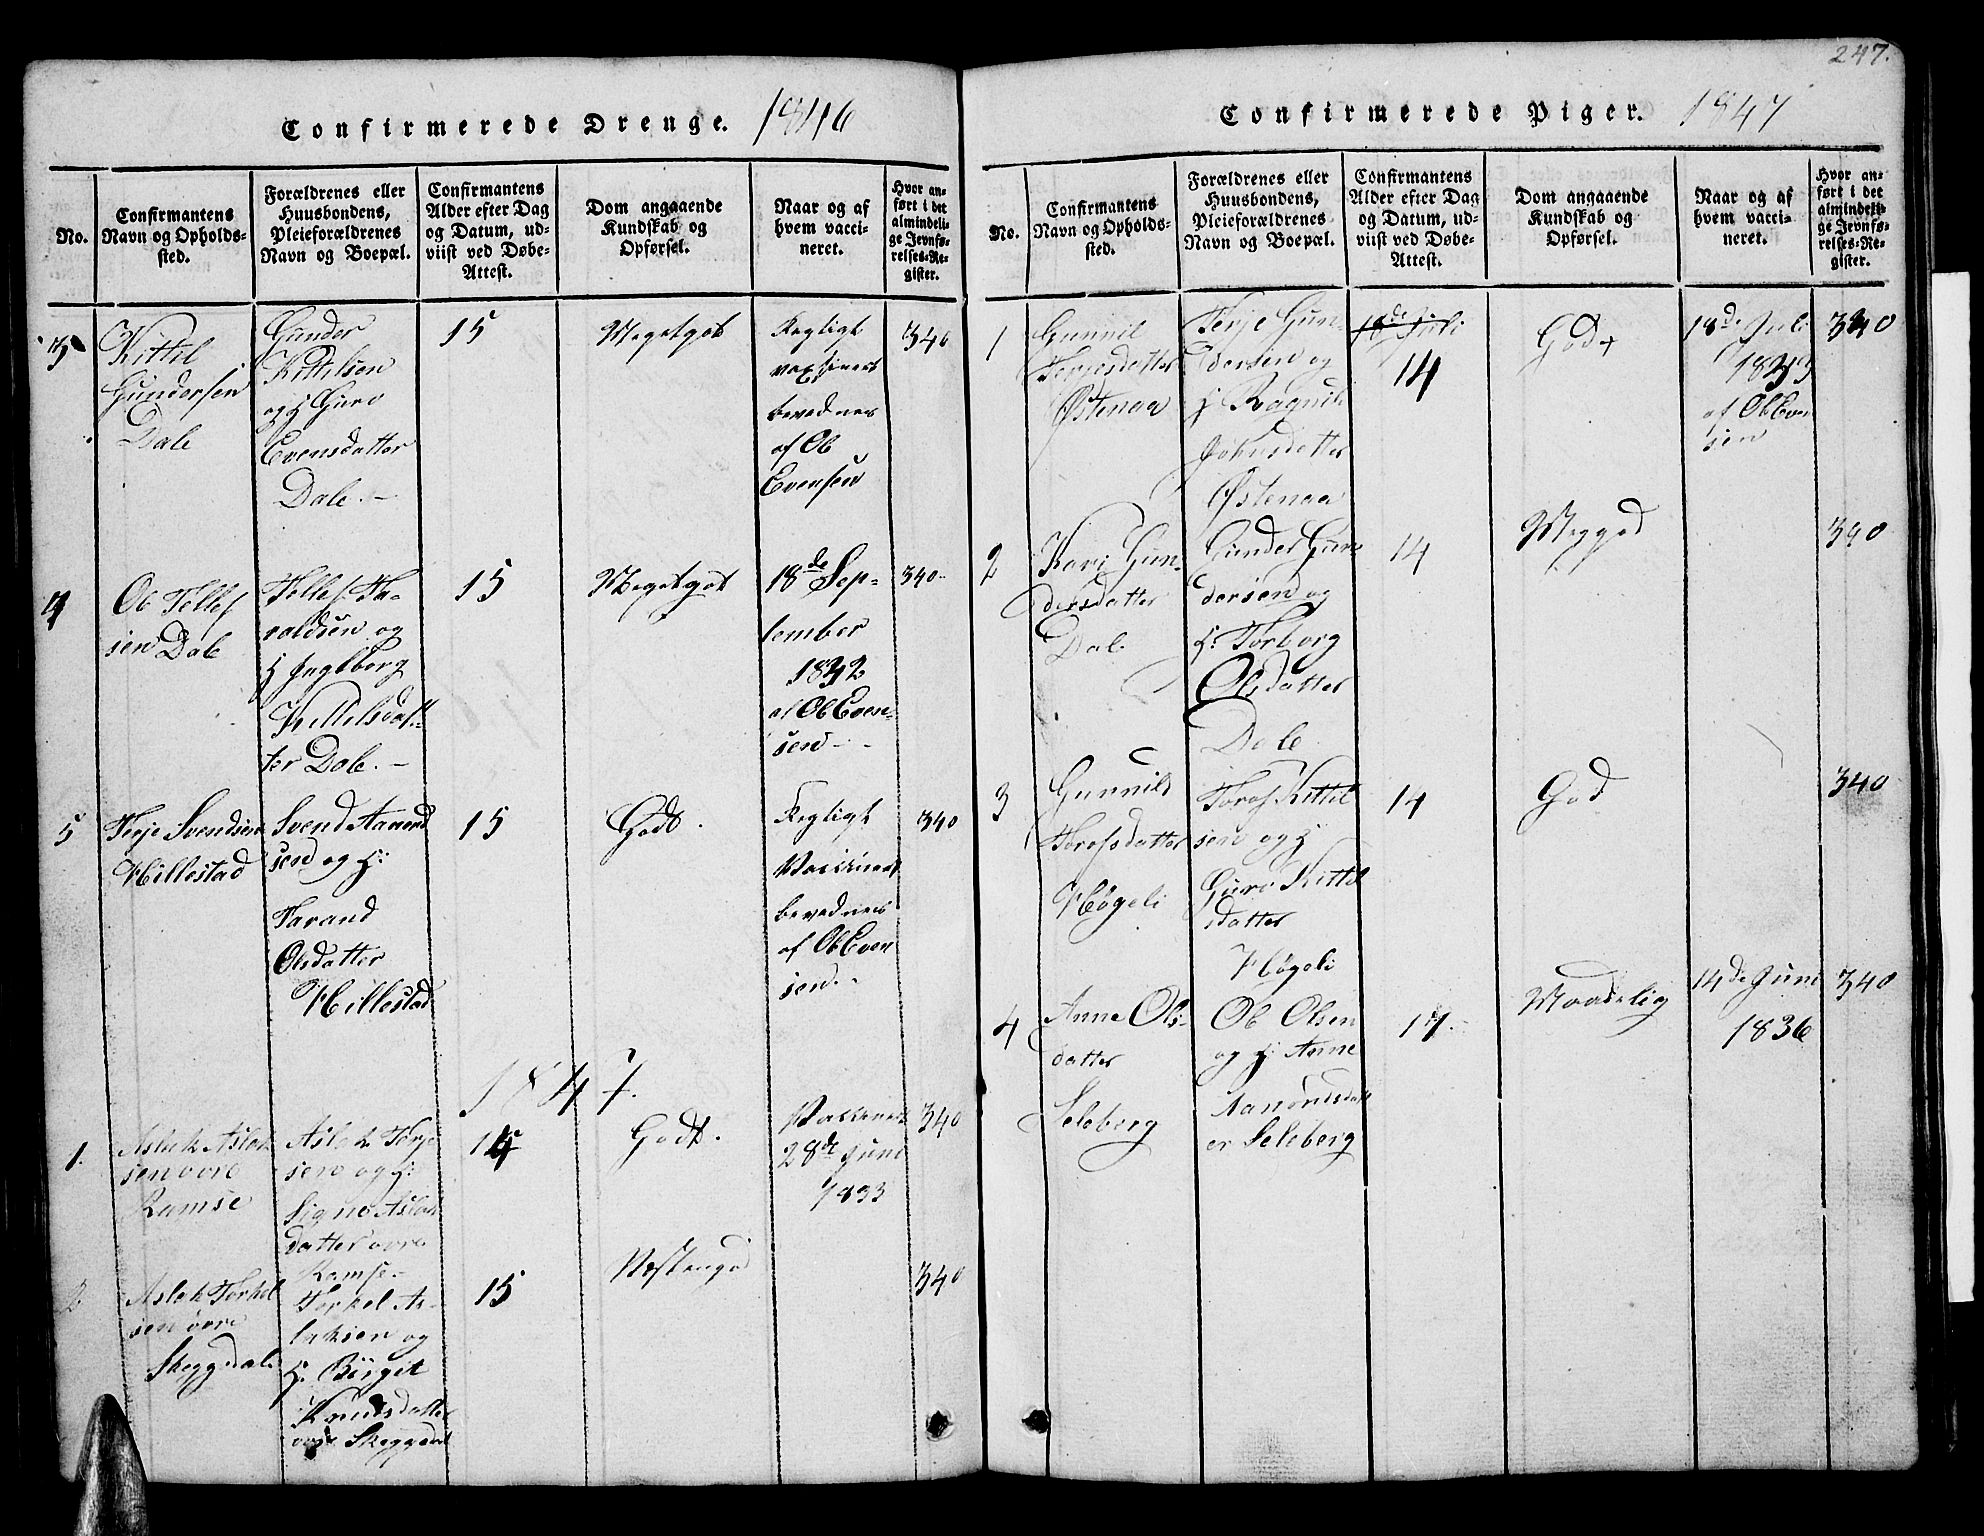 Confirmerede Drenge. 1846
No.
Confirmantens
Navn og Opholds-
sted.
Forældrenes eller
Huusbondens,
Pleieforældrenes
Navn og Boepæl.
Confirmantens
Alder efter Dag
og Datum, ud-
viist ved Døbe-
Attest.
Dom angaaende
Kundskab og
Opførsel.
Naar og af
hvem vacci-
neret.
Hvor an-
ført i det
almindeli-
ge Jevnfø-
relses-Re-
gister.
3
Kittil
Gundersen
Dale
Gunder
Kittilsen
og H Guro
Evensdatter
Dale.
15
Megetgot
af Ob
Evensen
340
4
Ob Tellef
sen Dale
Tellef Ta-
raldsen og
H Ingeborg
Kittilsdat-
ter Dale.
15
Megetgot
18de Sep-
tember
1832
af Ob Even-
sen
340
5
Terje Svendsen
Hillestad
Svend Aanund
sen og H:
Tarand
Olsdatter
Hillestad
15
Godt.
af Ob Even
sen.
340
1847.
1.
Aslak Aslak
sen ovre
Ramse
Aslak Terje
sen og H:
Signe Aslak
datter ovre
Ramse
14
Godt.
28de Juni
1833
340
2
Aslak Torkel
sen ovre
Skeggedal
Torkel As-
laksen og
H. Birgit
Knudsdatter
ovre Skeggedal
15
340
247.
Confirmerede Piger. 1847
No.
Confirmantens
Navn og Opholds-
sted.
Forældrenes eller
Huusbondens,
Pleieforældrenes
Navn og Boepæl.
Confirmantens
Alder efter Dag
og Datum, ud-
viist ved Døbe-
Attest.
Dom angaaende
Kundskab og
Opførsel.
Naar og af
hvem vacci-
neret.
Hvor an-
ført i det
almindeli-
ge Jevnfø-
relses-Re-
gister.
1
Gunnil
Terjesdatter
Østenaa
Terje Gun-
dersen og
H Ragnil
Johnsdatter
Østenaa
18de Juli
14
God
18de Juli
af Ob Even
sen
340
2
Kari Gun-
dersdatter
Dale
Gunder Gun-
dersen og
H. Torborg
Olsdatter
Dale
14
Meggod
340
3
Gunnild
Torofsdatter
Høgeli
Torof Kittil
sen og H
Guro Kittil
sdatter
Høgeli
14
God
340
4
Anne Ols-
datter
Seleberg
Ob Olsen
og H: Anne
Aanondsdatt
er Seleberg
17
Maadelig
14de Juni
1836
340